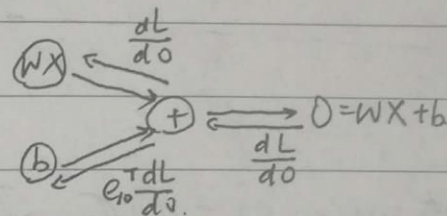 dL
do
WX
+
O=WX+b
b
dL
do
e₁₀ᵀ dL
do.